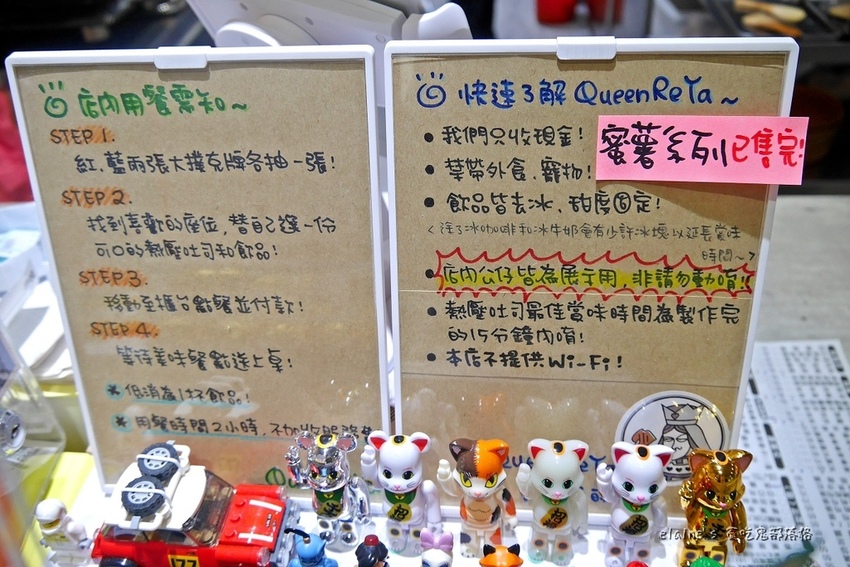 店內用餐需知~
STEP 1.
紅、藍兩張大撲克牌各抽一張!
STEP 2.
找到喜歡的座位,替自己選一份
可口的熱壓吐司和飲品!
STEP 3.
移動至櫃台點餐並付款!
STEP 4.
等待美味餐點送上桌!
*低消為1杯飲品!
*用餐時間2小時,不加收服務
快速了解QueenReYa~
•我們只收現金!
蜜薯系列已售完!
•禁帶外食、寵物!
•飲品皆去冰、甜度固定!
<除了冰咖啡和冰牛奶會有少許冰塊以延長賞味
時間~>
•店內公仔皆為展示用,非請勿動唷!!
•熱壓吐司最佳賞味時間為製作完
的15分鐘內唷!
•本店不提供Wi-Fi!
QueenReYa
177